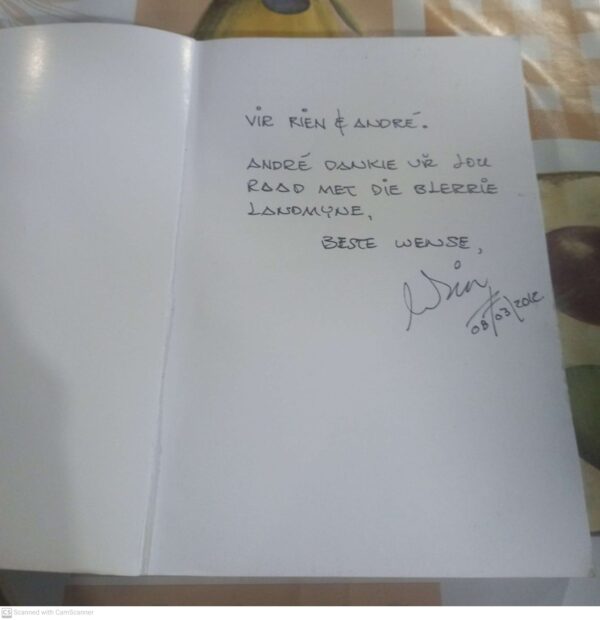 VIR RIEN & ANDRÉ.
ANDRÉ DANKIE VIR JOU
RAAD MET DIE BLERRIE
LANDMYNE,
BESTE WENSE,
08/03/2012
CS Scanned with CamScanner